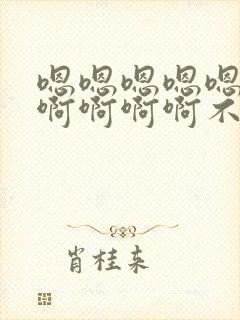 嗯嗯嗯嗯嗯
啊啊啊啊不
肖桂来